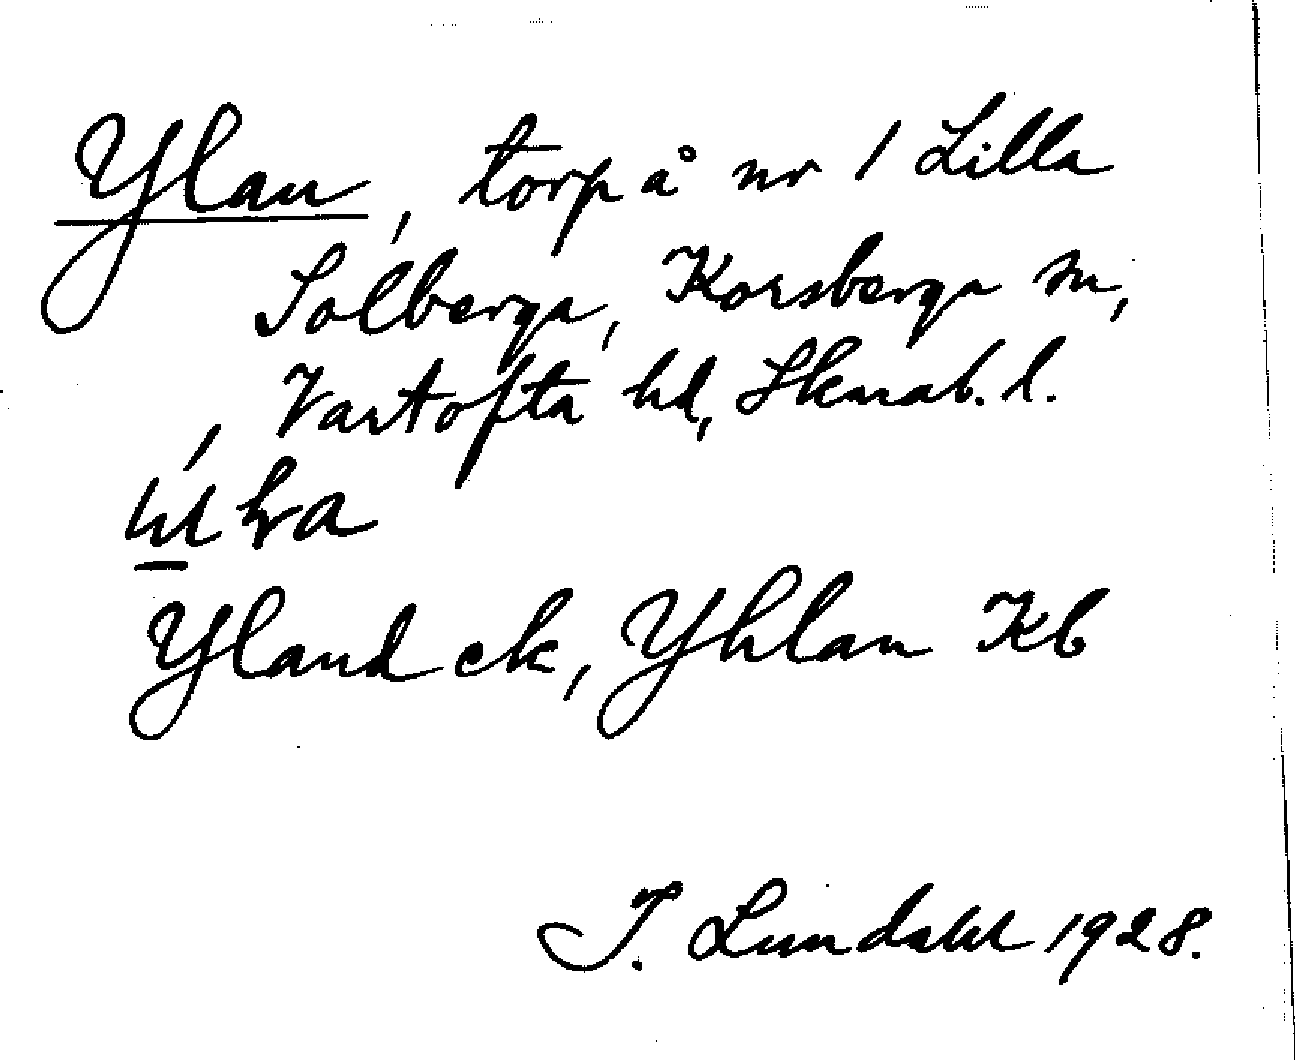 Ylan, torp å nr 1 Lilla
Solberga, Korsberga sn,
Vartofta hd, Skarab. l.
Ylandek, Yhlan Kb
I. Lundahl 1928.